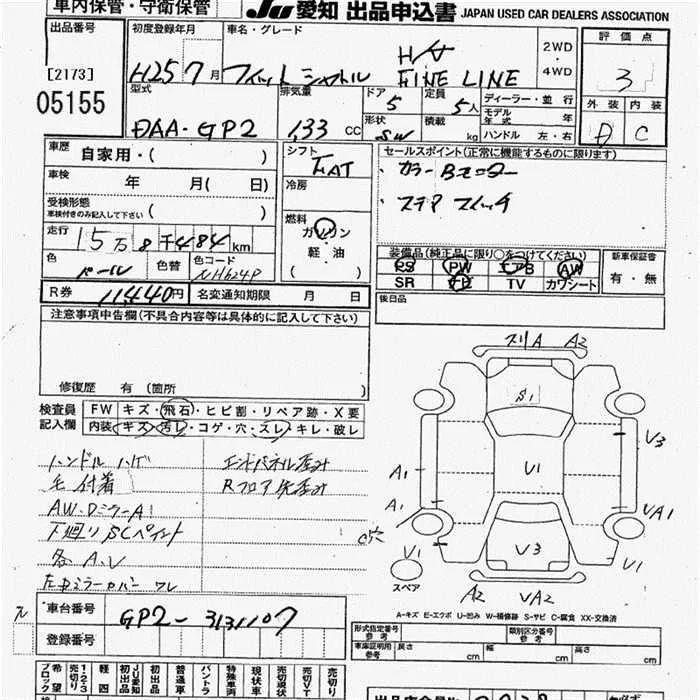 車内保管・守衛保管
JU 愛知 出品申込書 JAPAN USED CAR DEALERS ASSOCIATION
出品番号
[2173]
05155
初度登録年月
H25 7月
車名・グレード
フィットシャトル
H/V
FINE LINE
2WD
・
4WD
評価点
3
外装 内装
D C
型式
DAA-GP2
排気量
133 CC
ドア
5
形状
SW
定員
5人
積載
kg
ディーラー・並行
モデル年式 年
ハンドル 左・右
車歴
自家用・( )
車検
年 月( 日)
受検形態
車検付きのみ記入して下さい ( )
走行
15万8千484km
色
パール
色替
色コード
NH624P
シフト
FAT
冷房
燃料
ガソリン
・
軽油
( )
セールスポイント(正常に機能するものに限ります)
・カラーBモニター
・ステアスイッチ
装備品(純正品に限り○をつけてください)
PS PW エアB AW
SR ナビ TV カワシート
新車保証書
有・無
後日品
R券 11440円 名変通知期限 月 日
注意事項申告欄(不具合内容等は具体的に記入して下さい)
修復歴 有(箇所 )
検査員記入欄
FW キズ・飛石・ヒビ割・リペア跡・X要
内装 キズ・汚レ・コゲ・穴・スレ・キレ・破レ
ハンドルハゲ
毛付着
AW.DミラーA1
下廻りSCペイント
各A.U
左ドアミラーカバーワレ
エンドパネル歪み
Rフロア先歪み
スリA A2
S1
V3
A1
U1
A1
UA1
C穴
V1
スペア
V3
U1
A2 UA2
A-キズ E-エクボ U-凹み W-補修跡 S-サビ C-腐食 XX-交換済
車台番号
GP2-3131107
登録番号
形式指定番号
参考
類別区分番号
参考
車庫証明用
参考
長さ cm
幅 cm
高さ cm
希望ブロック
1・2・3売切り
軽四
JU愛知初出品
初出品
普通車
バントラ
特殊車両
現状車
売切現状
売切VT
売切り